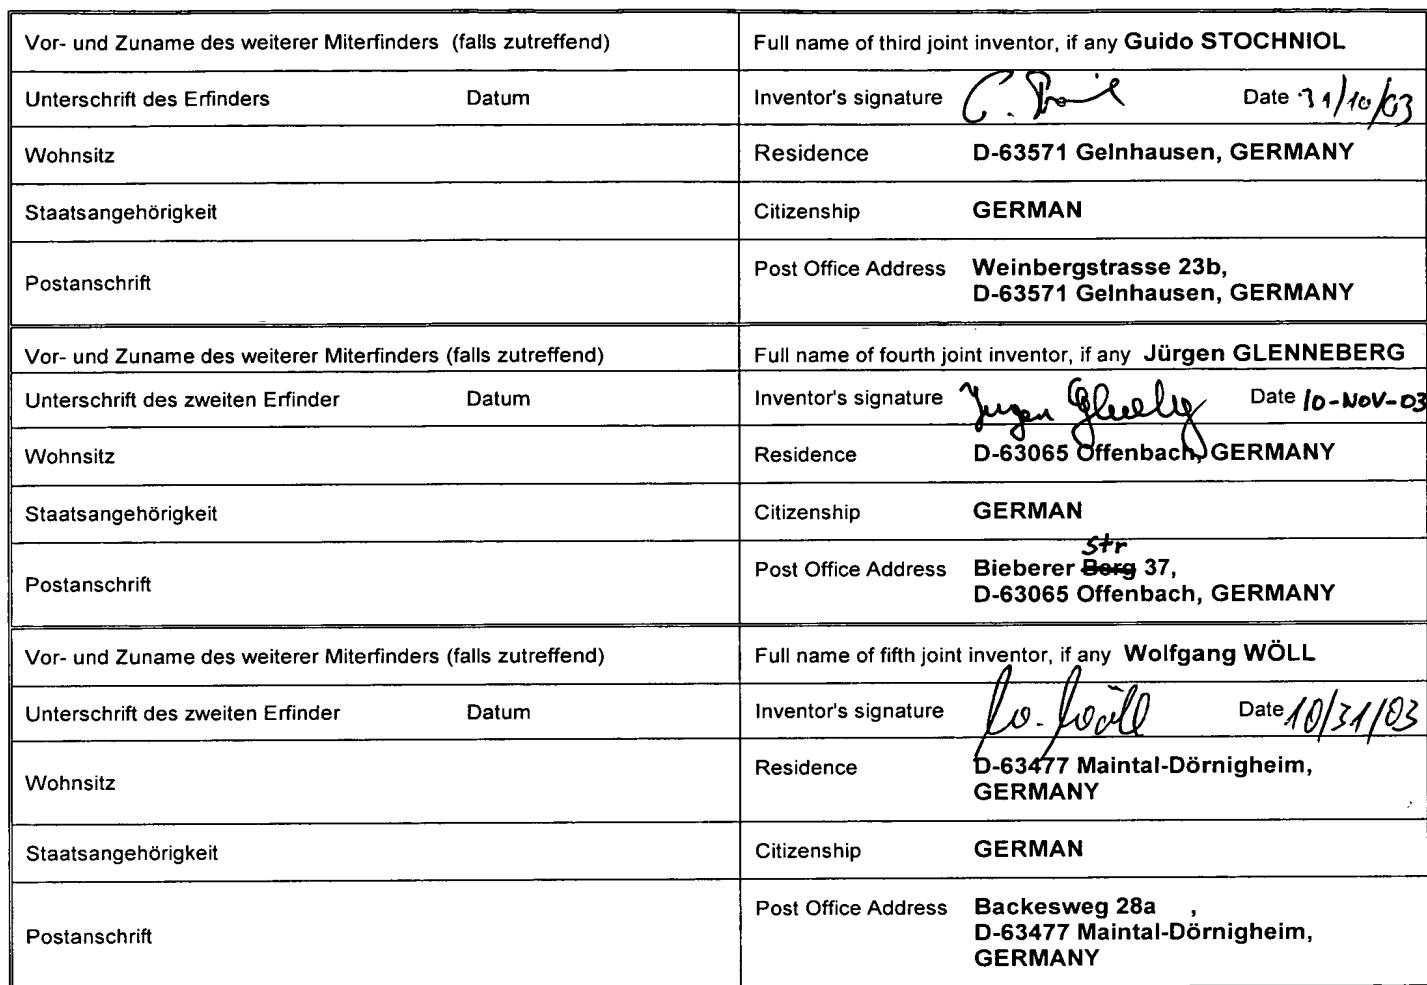 Vor- und Zuname des weiterer Miterfinders (falls zutreffend) Full name of third joint inventor, if any Guido STOCHNIOL
Unterschrift des Erfinders Datum Inventor's signature Date 31/10/03
Wohnsitz Residence D-63571 Gelnhausen, GERMANY
Staatsangehörigkeit Citizenship GERMAN
Postanschrift Post Office Address Weinbergstrasse 23b,
D-63571 Gelnhausen, GERMANY
Vor- und Zuname des weiterer Miterfinders (falls zutreffend) Full name of fourth joint inventor, if any Jürgen GLENNEBERG
Unterschrift des zweiten Erfinder Datum Inventor's signature Jürgen Date 10-NOV-03
Wohnsitz Residence D-63065 Offenbach, GERMANY
Staatsangehörigkeit Citizenship GERMAN
str
Postanschrift Post Office Address Bieberer Berg 37,
D-63065 Offenbach, GERMANY
Vor- und Zuname des weiterer Miterfinders (falls zutreffend) Full name of fifth joint inventor, if any Wolfgang WÖLL
Unterschrift des zweiten Erfinder Datum Inventor's signature W. Wöll Date 10/31/03
Wohnsitz Residence D-63477 Maintal-Dörnigheim,
GERMANY
Staatsangehörigkeit Citizenship GERMAN
Postanschrift Post Office Address Backesweg 28a ,
D-63477 Maintal-Dörnigheim,
GERMANY